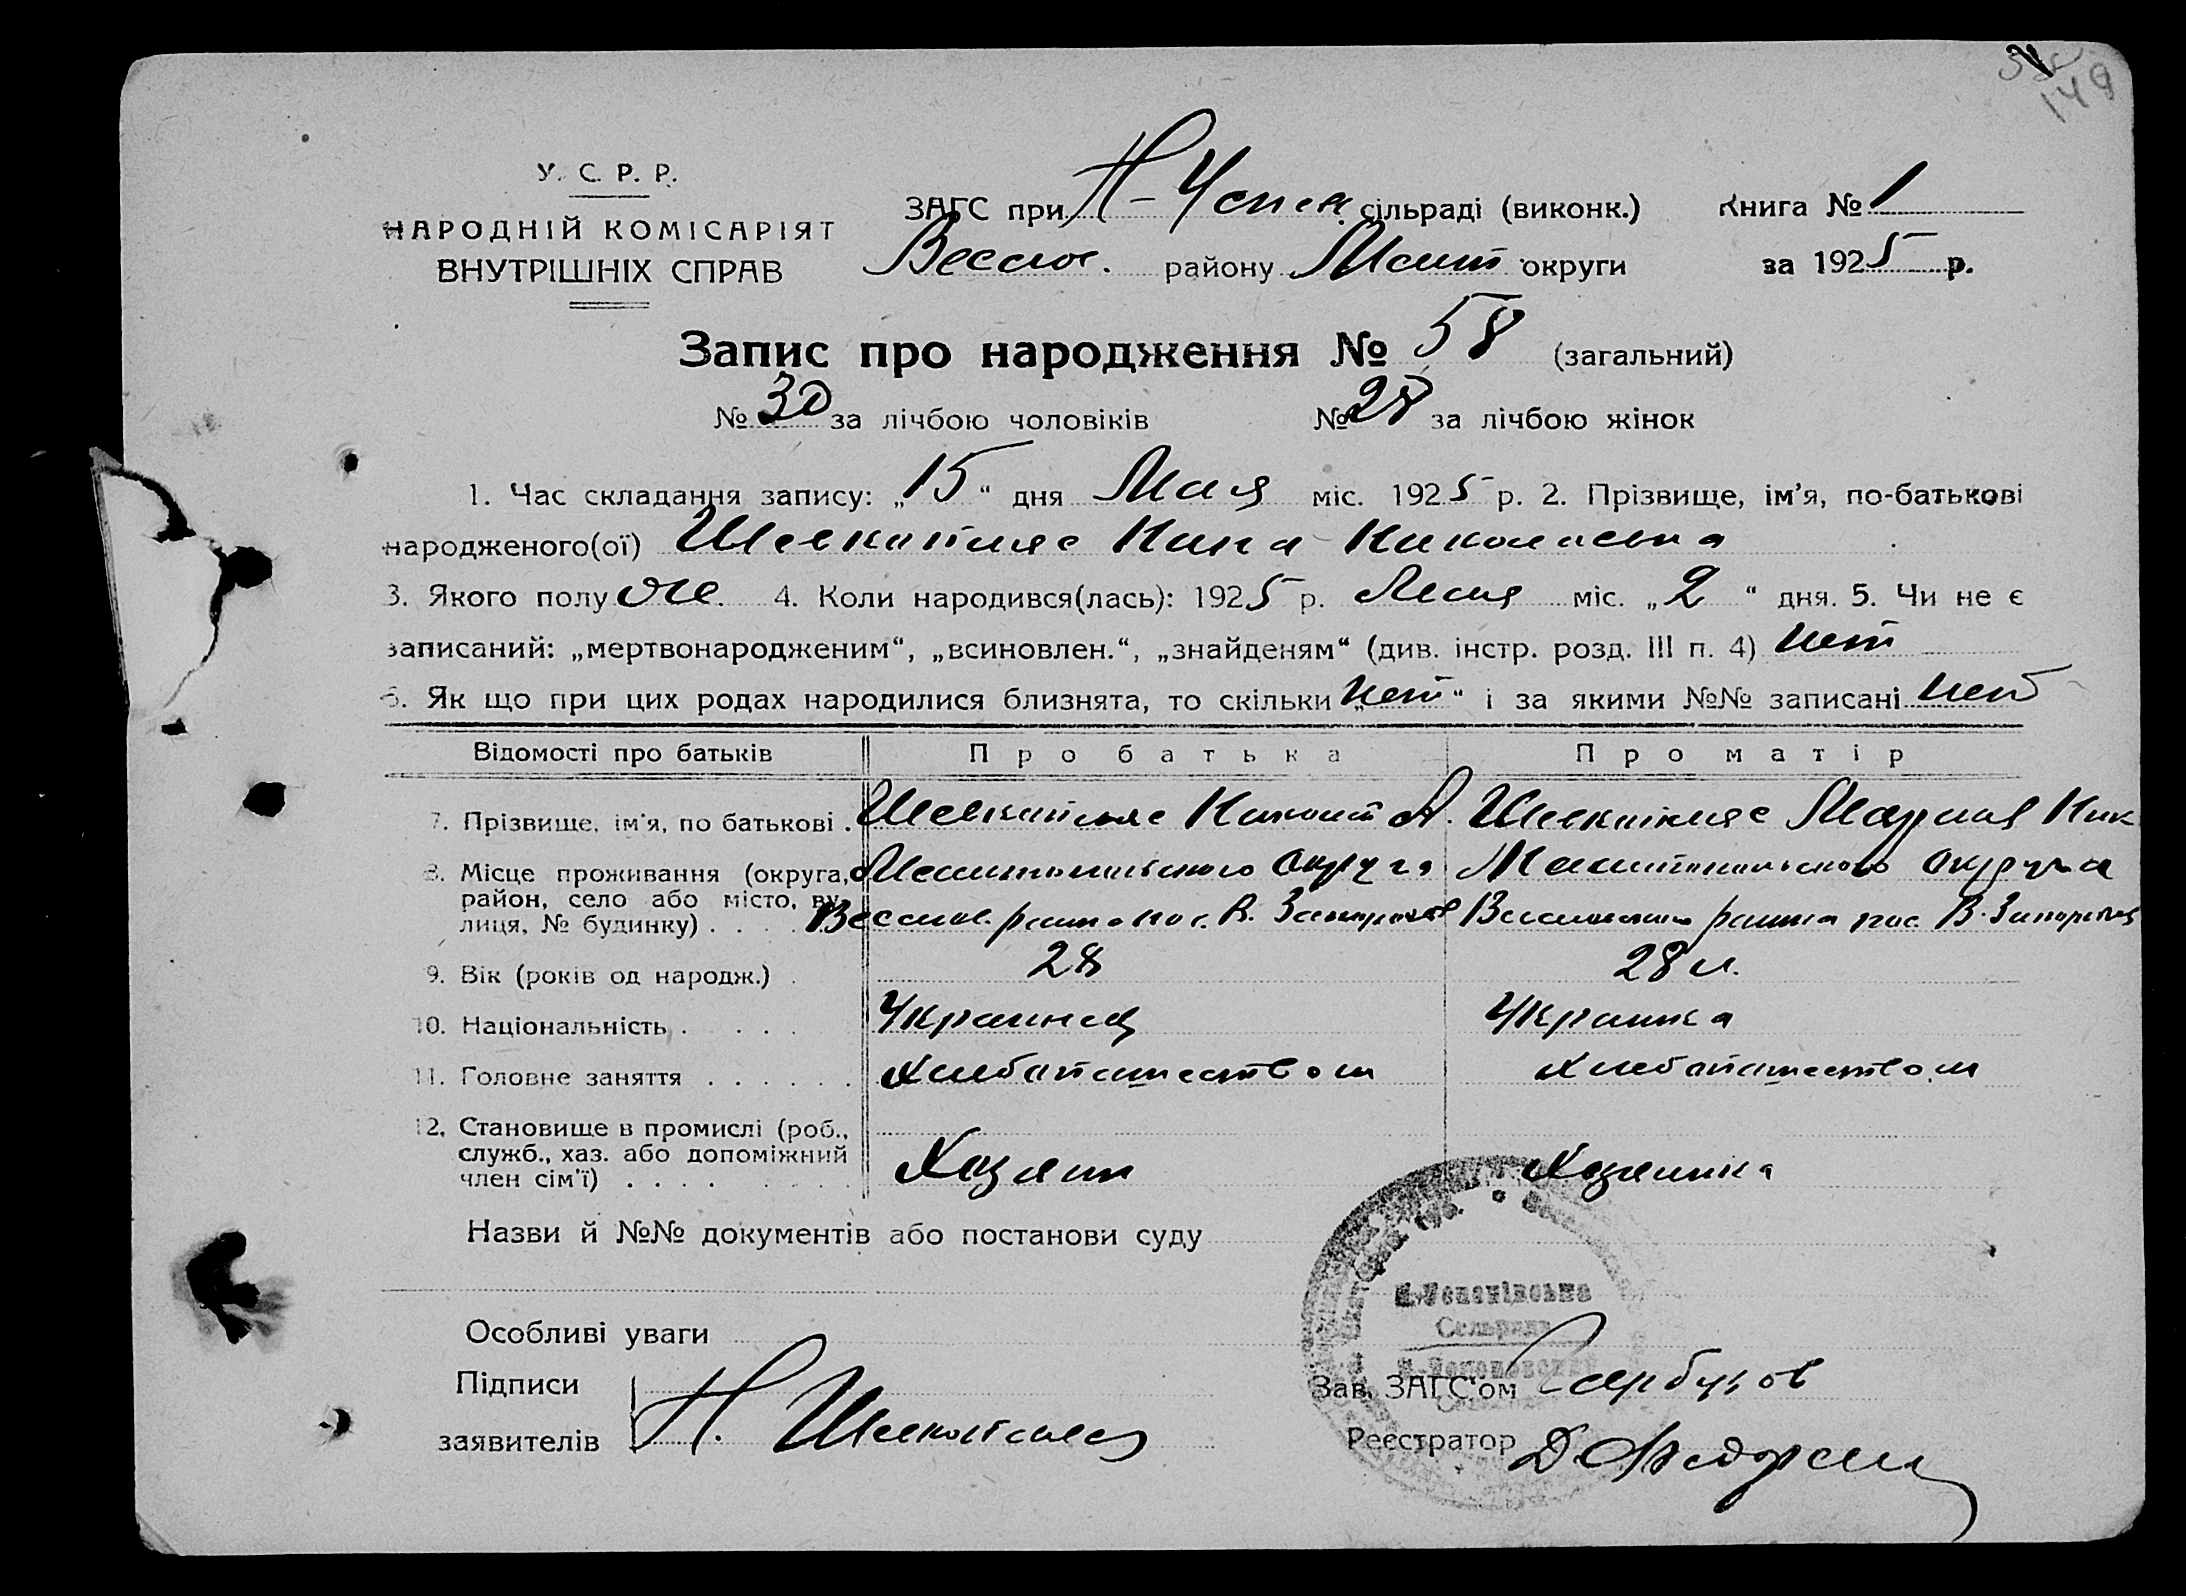 149
У. С. Р. Р.
НАРОДНІЙ КОМІСАРІЯТ
ВНУТРІШНІХ СПРАВ
ЗАГС при Н-Успен сільраді (виконк.) Книга № 1
Весело. району Мелит округи за 1925 р.
Запис про народження № 58 (загальний)
№ 30 за лічбою чоловіків № 28 за лічбою жінок
1. Час складання запису: „15“ дня Мая міс. 1925 р. 2. Прізвище, ім'я, по-батькові
народженого(ої) Нина Николаевна
3. Якого полу же. 4. Коли народився(лась): 1925 р. Мая міс. „2“ дня. 5. Чи не є
записаний: „мертвонародженим“, „всиновлен.“, „знайденям“ (див. інстр. розд. III п. 4) нет
6. Як що при цих родах народилися близнята, то скільки „нет“ і за якими №№ записані нет
Відомості про батьків Про батька Про матір
7. Прізвище, ім'я, по батькові . Мария Ник
8. Місце проживання (округа, Мелитопольского округа Мелитопольского округа
район, село або місто, ву-
лиця, № будинку) . . . . Весело. района пос. В. Запорожье района пос. В. Запорожье
9. Вік (років од народж.) . 28 28 л.
10. Національність . . . . Украинец Украинка
11. Головне заняття . . . . . . Хлебопашеством Хлебопашеством
12. Становище в промислі (роб.,
служб., хаз. або допоміжний
член сім'ї) . . . . . . . . Хозяин Хозяйка
Назви й №№ документів або постанови суду
Особливі уваги
Підписи
заявителів Н.
Сельрада
Зав. ЗАГС'ом
Реєстратор